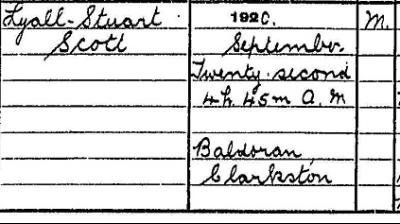 Lyall Stuart 1920. M.
Scott September
Twenty second
4h. 45m A. M
Baldoran,
Clarkston